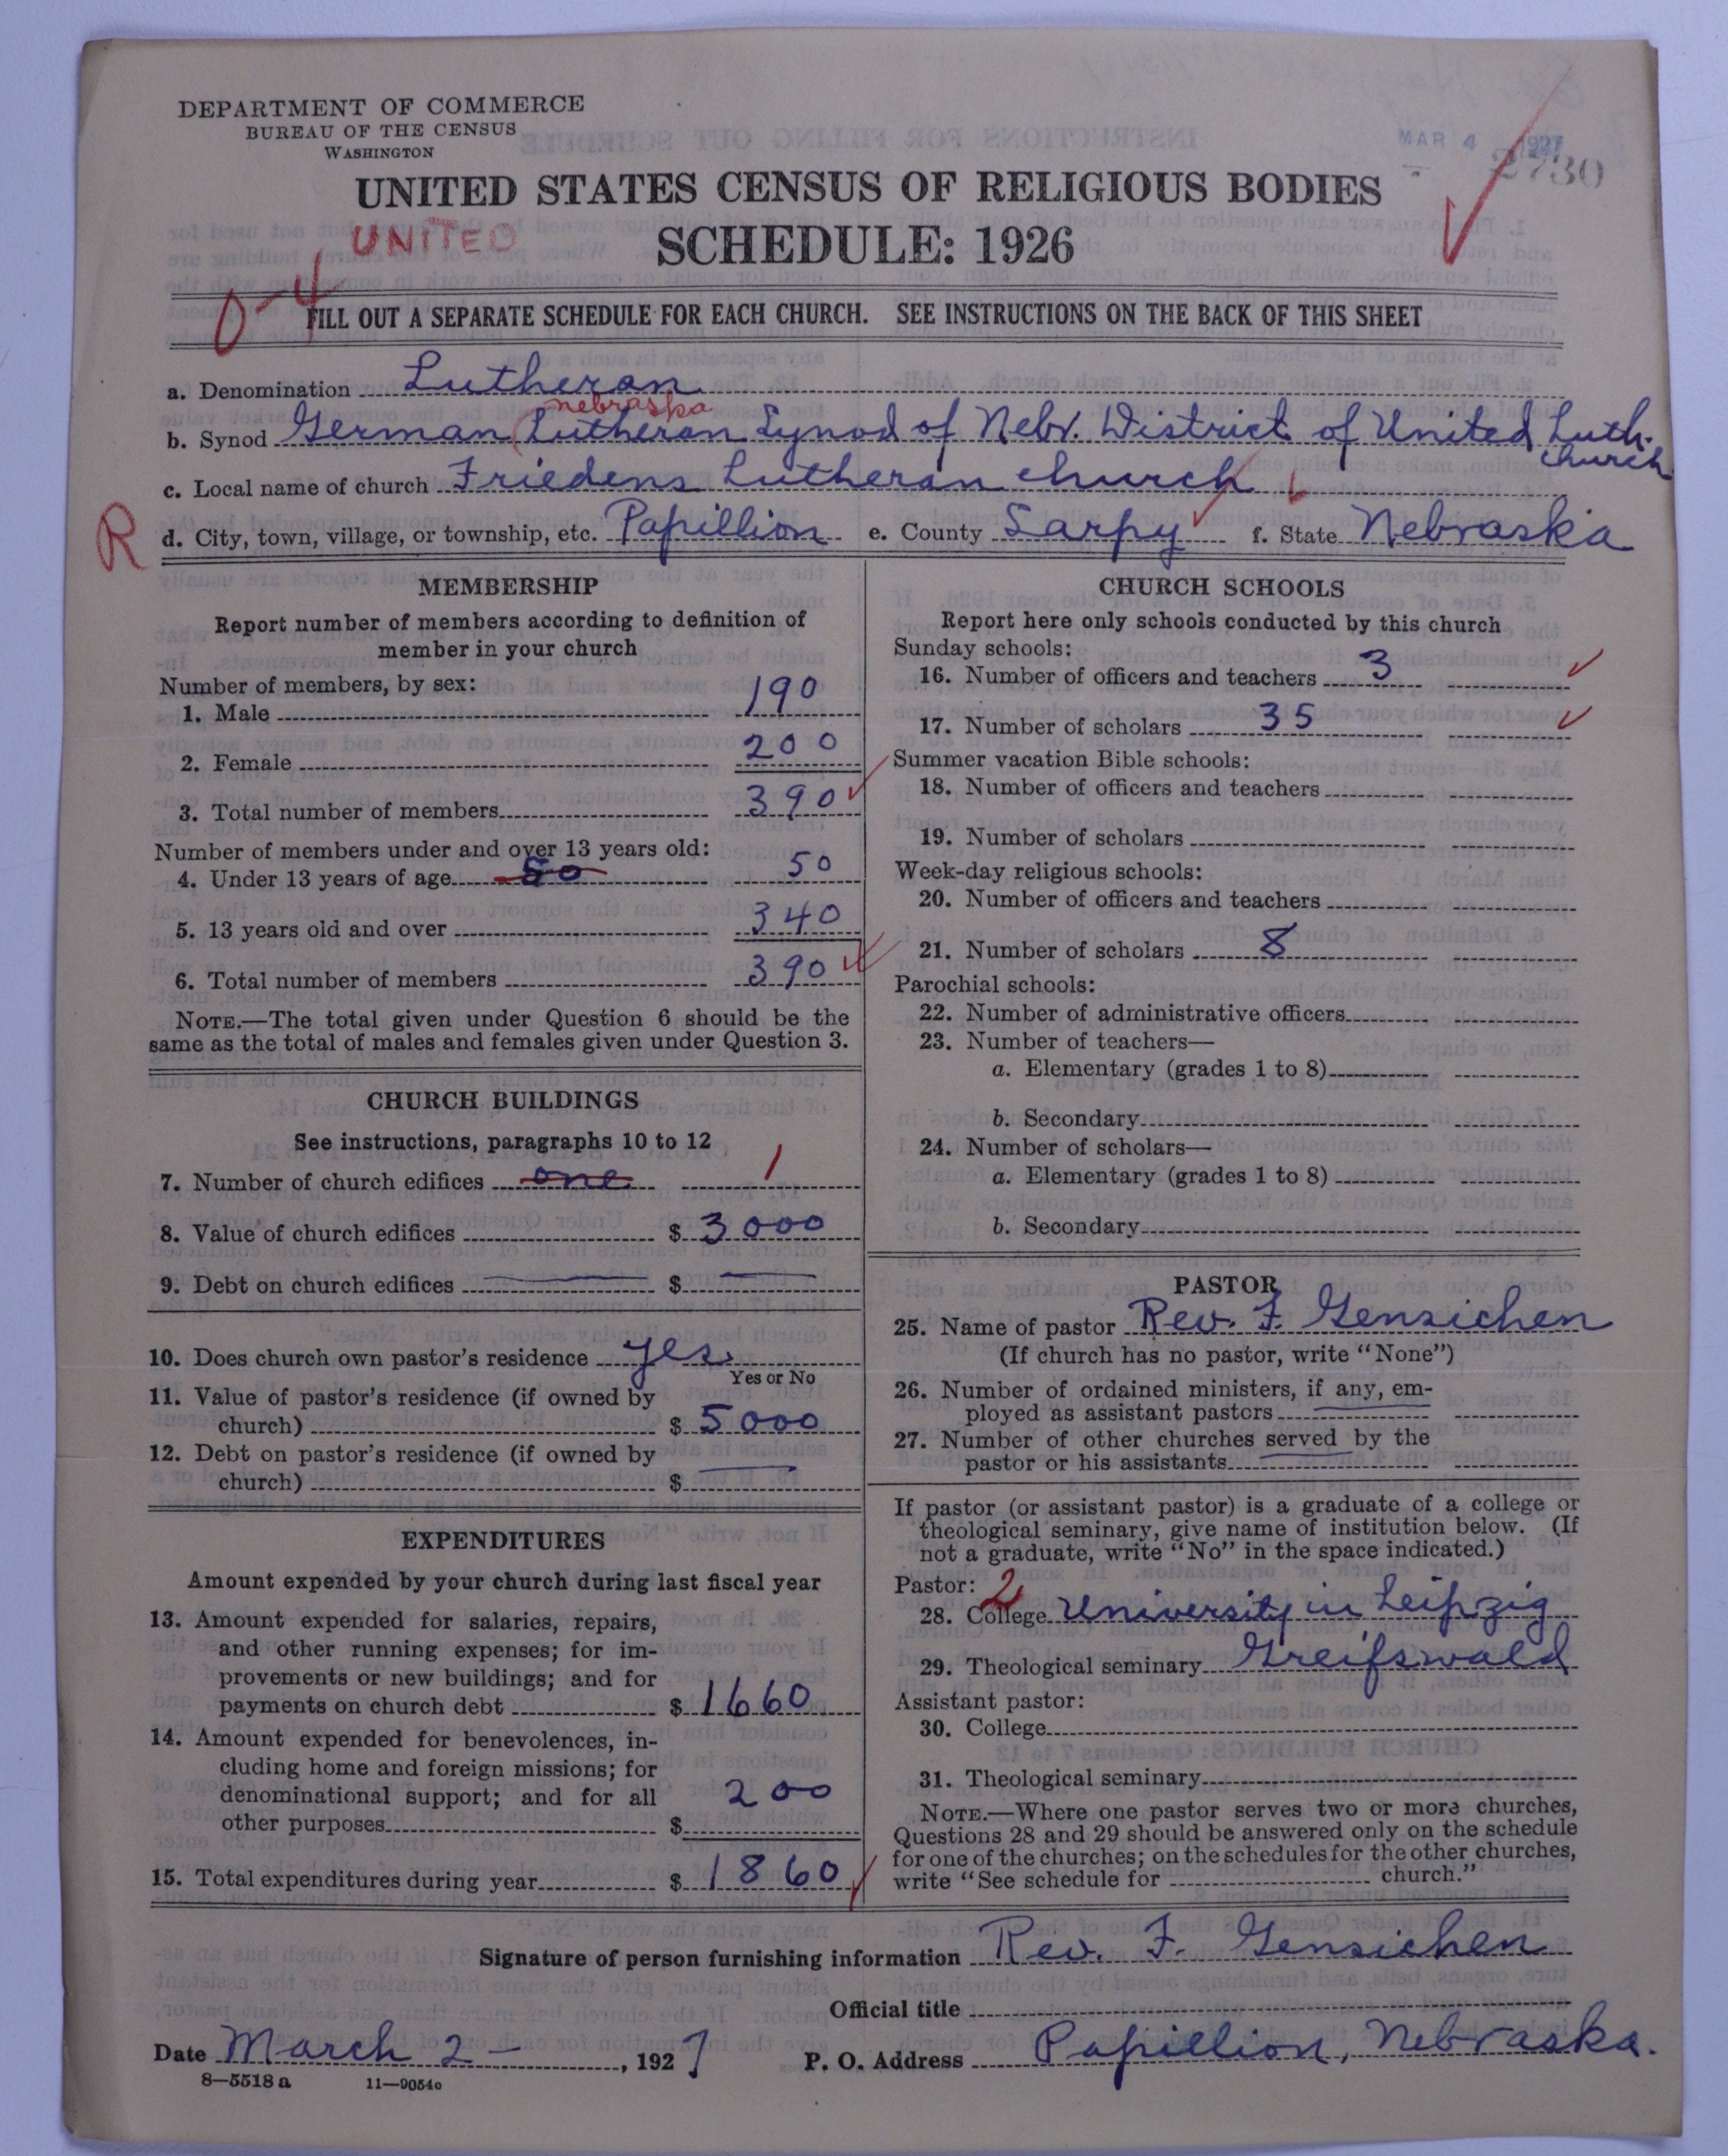 DEPARTMENT OF COMMERCE
BUREAU OF THE CENSUS
WASHINGTON
MAR 4 1927
2730
UNITED STATES CENSUS OF RELIGIOUS BODIES
UNITED
SCHEDULE: 1926
0-4
FILL OUT A SEPARATE SCHEDULE FOR EACH CHURCH. SEE INSTRUCTIONS ON THE BACK OF THIS SHEET
a. Denomination Lutheran
nebraska
b. Synod German Lutheran Synod of Nebr. District of United Luth. church
c. Local name of church Friedens Lutheran church
R
d. City, town, village, or township, etc. Papillion e. County Sarpy f. State Nebraska
MEMBERSHIP
Report number of members according to definition of
member in your church
Number of members, by sex:
1. Male 190
2. Female 200
3. Total number of members 390
Number of members under and over 13 years old:
4. Under 13 years of age 50 50
5. 13 years old and over 340
6. Total number of members 390
NOTE.—The total given under Question 6 should be the
same as the total of males and females given under Question 3.
CHURCH BUILDINGS
See instructions, paragraphs 10 to 12
7. Number of church edifices one 1
8. Value of church edifices $ 3000
9. Debt on church edifices $ —
10. Does church own pastor's residence yes
Yes or No
11. Value of pastor's residence (if owned by
church) $ 5000
12. Debt on pastor's residence (if owned by
church) $ —
EXPENDITURES
Amount expended by your church during last fiscal year
13. Amount expended for salaries, repairs,
and other running expenses; for im-
provements or new buildings; and for
payments on church debt $ 1660
14. Amount expended for benevolences, in-
cluding home and foreign missions; for
denominational support; and for all
other purposes $ 200
15. Total expenditures during year $ 1860
CHURCH SCHOOLS
Report here only schools conducted by this church
Sunday schools:
16. Number of officers and teachers 3
17. Number of scholars 35
Summer vacation Bible schools:
18. Number of officers and teachers
19. Number of scholars
Week-day religious schools:
20. Number of officers and teachers
21. Number of scholars 8
Parochial schools:
22. Number of administrative officers
23. Number of teachers—
a. Elementary (grades 1 to 8)
b. Secondary
24. Number of scholars—
a. Elementary (grades 1 to 8)
b. Secondary
PASTOR
25. Name of pastor Rev. F. Gensichen
(If church has no pastor, write "None")
26. Number of ordained ministers, if any, em-
ployed as assistant pastors —
27. Number of other churches served by the
pastor or his assistants —
If pastor (or assistant pastor) is a graduate of a college or
theological seminary, give name of institution below. (If
not a graduate, write "No" in the space indicated.)
Pastor: 2
28. College University in Leipzig
29. Theological seminary Greifswald
Assistant pastor:
30. College
31. Theological seminary
NOTE.—Where one pastor serves two or more churches,
Questions 28 and 29 should be answered only on the schedule
for one of the churches; on the schedules for the other churches,
write "See schedule for church."
Signature of person furnishing information Rev. F. Gensichen
Official title
Date March 2 - , 1927 P. O. Address Papillion, Nebraska.
8—5518a 11—9054c